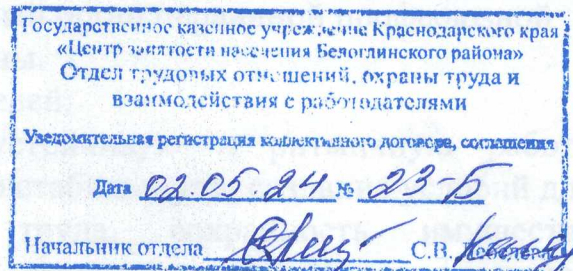 Государственное казенное учреждение Краснодарского края
«Центр занятости населения Белоглинского района»
Отдел трудовых отношений, охраны труда и
взаимодействия с работодателями
Уведомительная регистрация коллективного договора, соглашения
Дата 02 05 24 № 23-Б
Начальник отдела С.В.